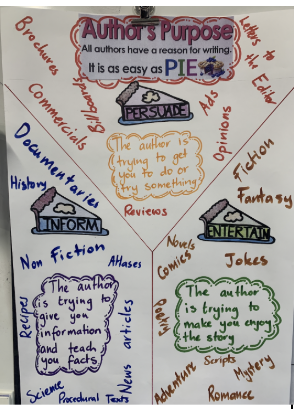 Author's Purpose
All authors have a reason for writing.
It is as easy as PIE
Brochures
Commercials
Billboards
Letters to the Editor
Ads
Opinions
PERSUADE
The author is
trying to get
you to do or
try something
Reviews
Documentaries
History
INFORM
Non Fiction
Atlases
Recipes
The author
is trying to
give you
information
and teach
you facts
News articles
Science
Procedural Texts
Fiction
Fantasy
ENTERTAIN
Novels
Comics
Jokes
Poetry
The author
is trying to
make you enjoy
the story
Scripts
Adventure
Mystery
Romance